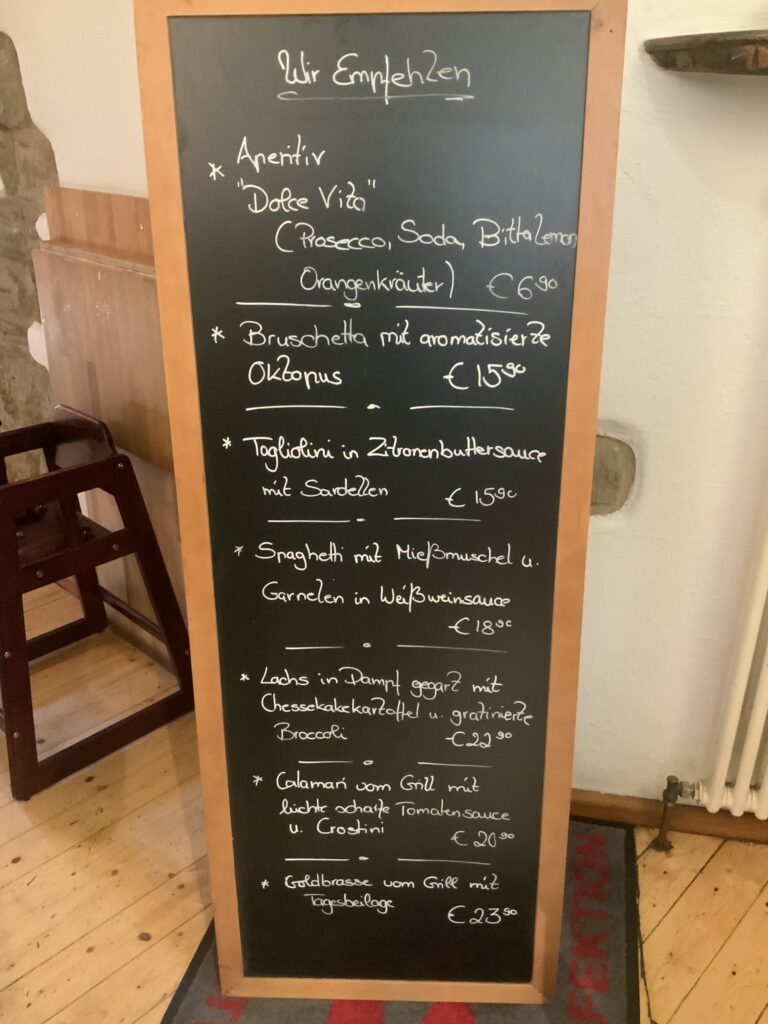 Wir Empfehlen
* Aperitiv
"Dolce Vita"
(Prosecco, Soda, Bitta Lemon
Orangenkräuter) € 6,90
* Bruschetta mit aromatisierte
Oktopus € 15,90
* Tagliolini in Zitronenbuttersauce
mit Sardellen € 15,90
* Spaghetti mit Mießmuschel u.
Garnelen in Weißweinsauce
€ 18,90
* Lachs in Dampf gegart mit
Chessekakekartoffel u. gratinierte
Broccoli € 22,90
* Calamari vom Grill mit
leichte scharfe Tomatensauce
u. Crostini € 20,90
* Goldbrasse vom Grill mit
Tagesbeilage € 23,90
FEKTION